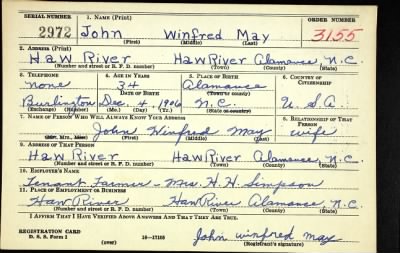 SERIAL NUMBER 1. NAME (Print) ORDER NUMBER
2972 John Winfred May 3155
(First) (Middle) (Last)
2. ADDRESS (Print)
Haw River Haw River Alamance N.C.
(Number and street or R. F. D. number) (Town) (County) (State)
3. TELEPHONE 4. AGE IN YEARS 5. PLACE OF BIRTH 6. COUNTRY OF CITIZENSHIP
None 34 Alamance
DATE OF BIRTH (Town or county)
Burlington Dec. 4, 1906 N.C. U.S.A.
(Exchange) (Number) (Mo.) (Day) (Yr.) (State or country)
7. NAME OF PERSON WHO WILL ALWAYS KNOW YOUR ADDRESS 8. RELATIONSHIP OF THAT PERSON
John Winfred May wife
(Mr., Mrs., Miss) (First) (Middle) (Last)
9. ADDRESS OF THAT PERSON
Haw River Haw River Alamance N.C.
(Number and street or R. F. D. number) (Town) (County) (State)
10. EMPLOYER'S NAME
Tenant Farmer - Mrs. H. H. Simpson
11. PLACE OF EMPLOYMENT OR BUSINESS
Haw River Haw River Alamance N.C.
(Number and street or R. F. D. number) (Town) (County) (State)
I AFFIRM THAT I HAVE VERIFIED ABOVE ANSWERS AND THAT THEY ARE TRUE.
REGISTRATION CARD
D. S. S. Form 1 (over) 16-17105 John winfred may
(Registrant's signature)